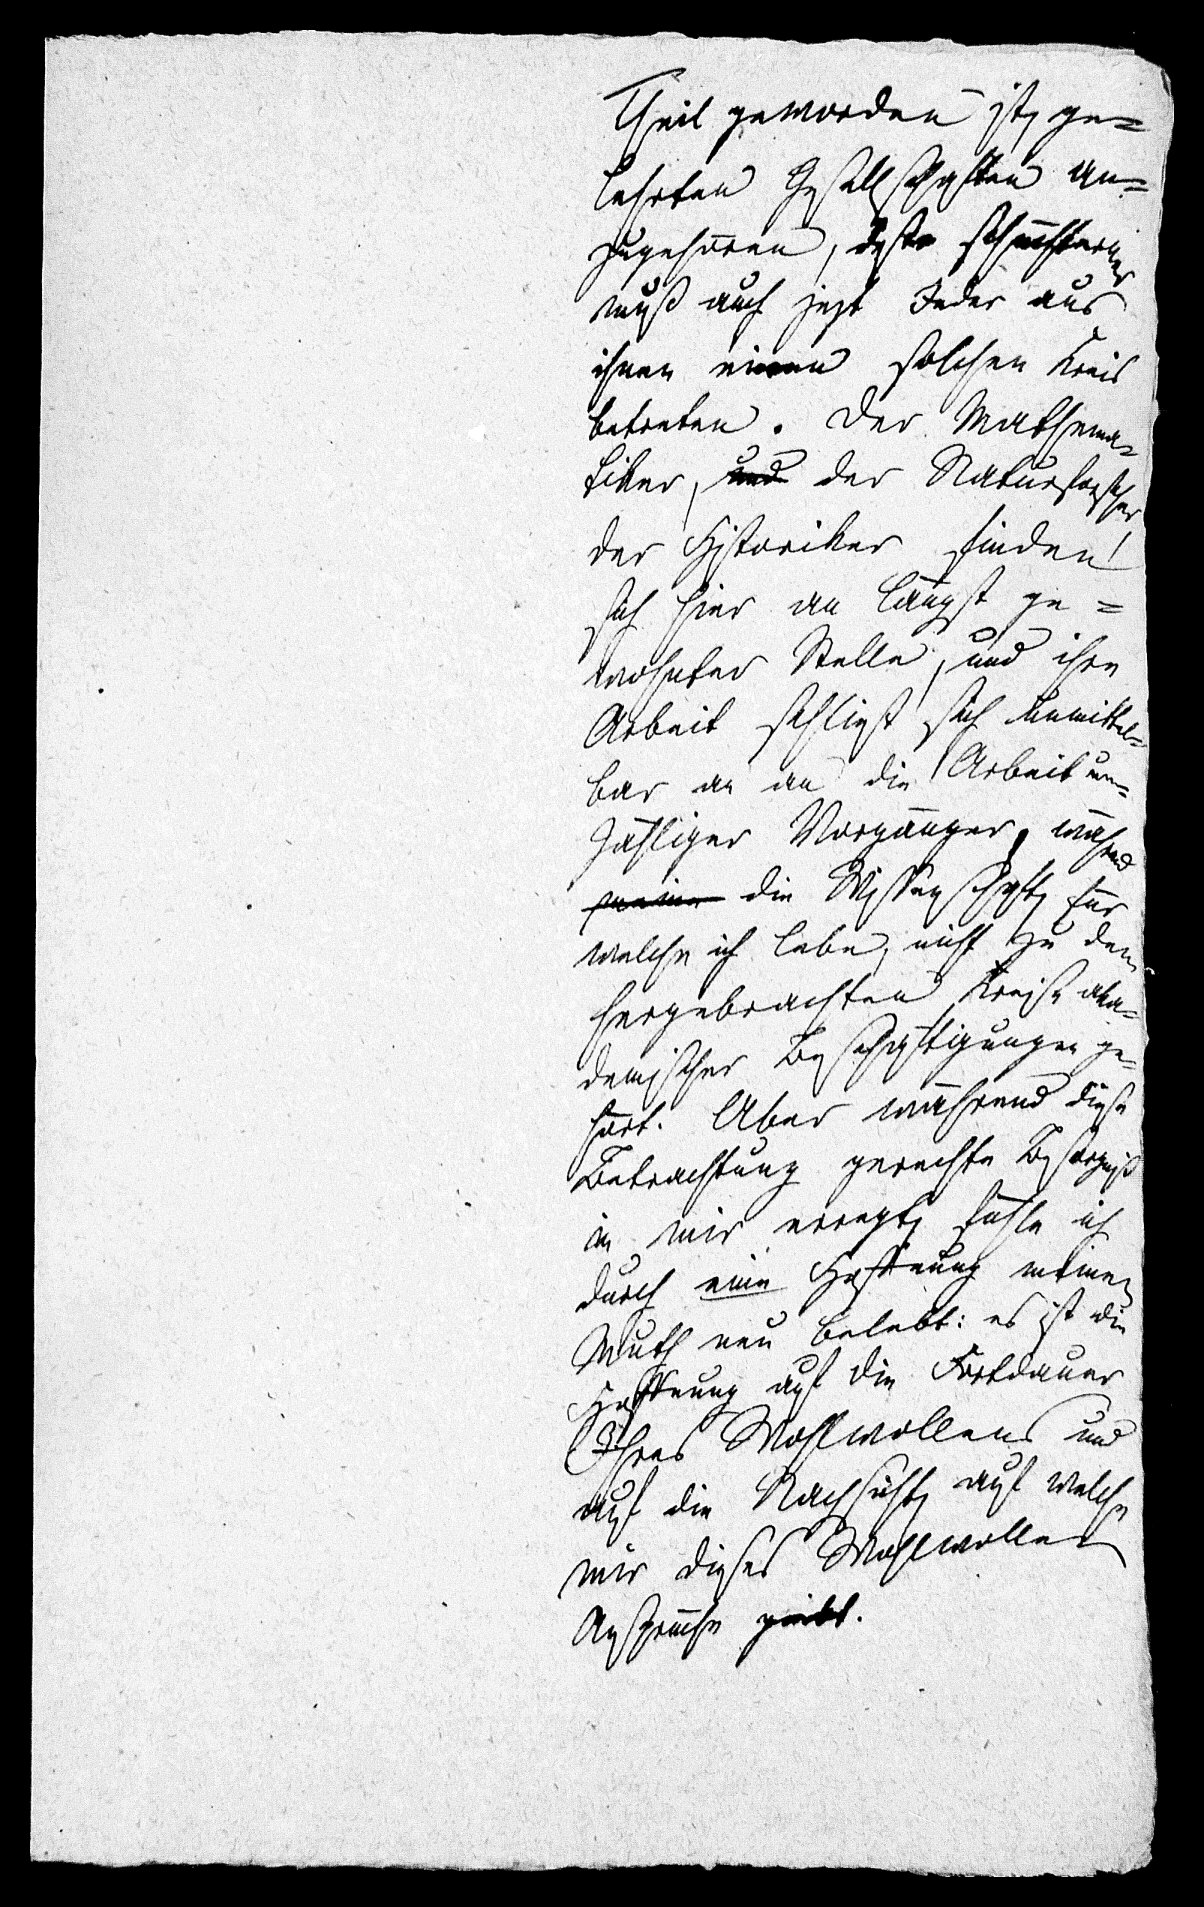 Theil geworden ist, ge=
lehrten Gesellschaften an=
zugehören, desto schüchterner
muß auch jezt Jeder aus
ihnen einen solchen Kreis
betreten. Der Mathema=
tiker, und der Naturforscher,
der Historiker finden
sich hier an längst ge=
wohnter Stelle, und ihre
Arbeit schließt sich unmittel=
bar an an die Arbeit un=
zähliger Vorgänger, während
meine die Wissenschaft, für
welche ich lebe, nicht zu dem
hergebrachten Kreise aka=
demischer Beschäftigungen ge=
hört. Aber während diese
Betrachtung gerechte Besorgniß
in mir erregt, fühle ich
durch eine Hoffnung meinen
Muth neu belebt: es ist die
Hoffnung auf die Fortdauer
Ihres Wohlwollens und
auf die Nachsicht, auf welche
mir dieses Wohlwollen
Ansprüche giebt.